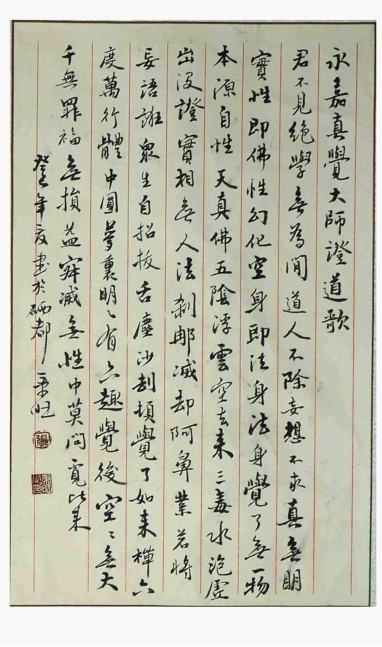 永嘉真覺大師證道歌
君不見絕學無為閒道人不除妄想不求真無明
實性即佛性幻化空身即法身法身覺了無一物
本源自性天真佛五陰浮雲空去來三毒水泡虛
出没證實相無人法剎那滅却阿鼻業若將
妄語誑衆生自招拔舌塵沙劫頓覺了如来禪六
度萬行體中圓夢裏明〻有六趣覺後空〻無大
千無罪福無損益寂滅無性中莫问覓比来
癸年夏書於硒都